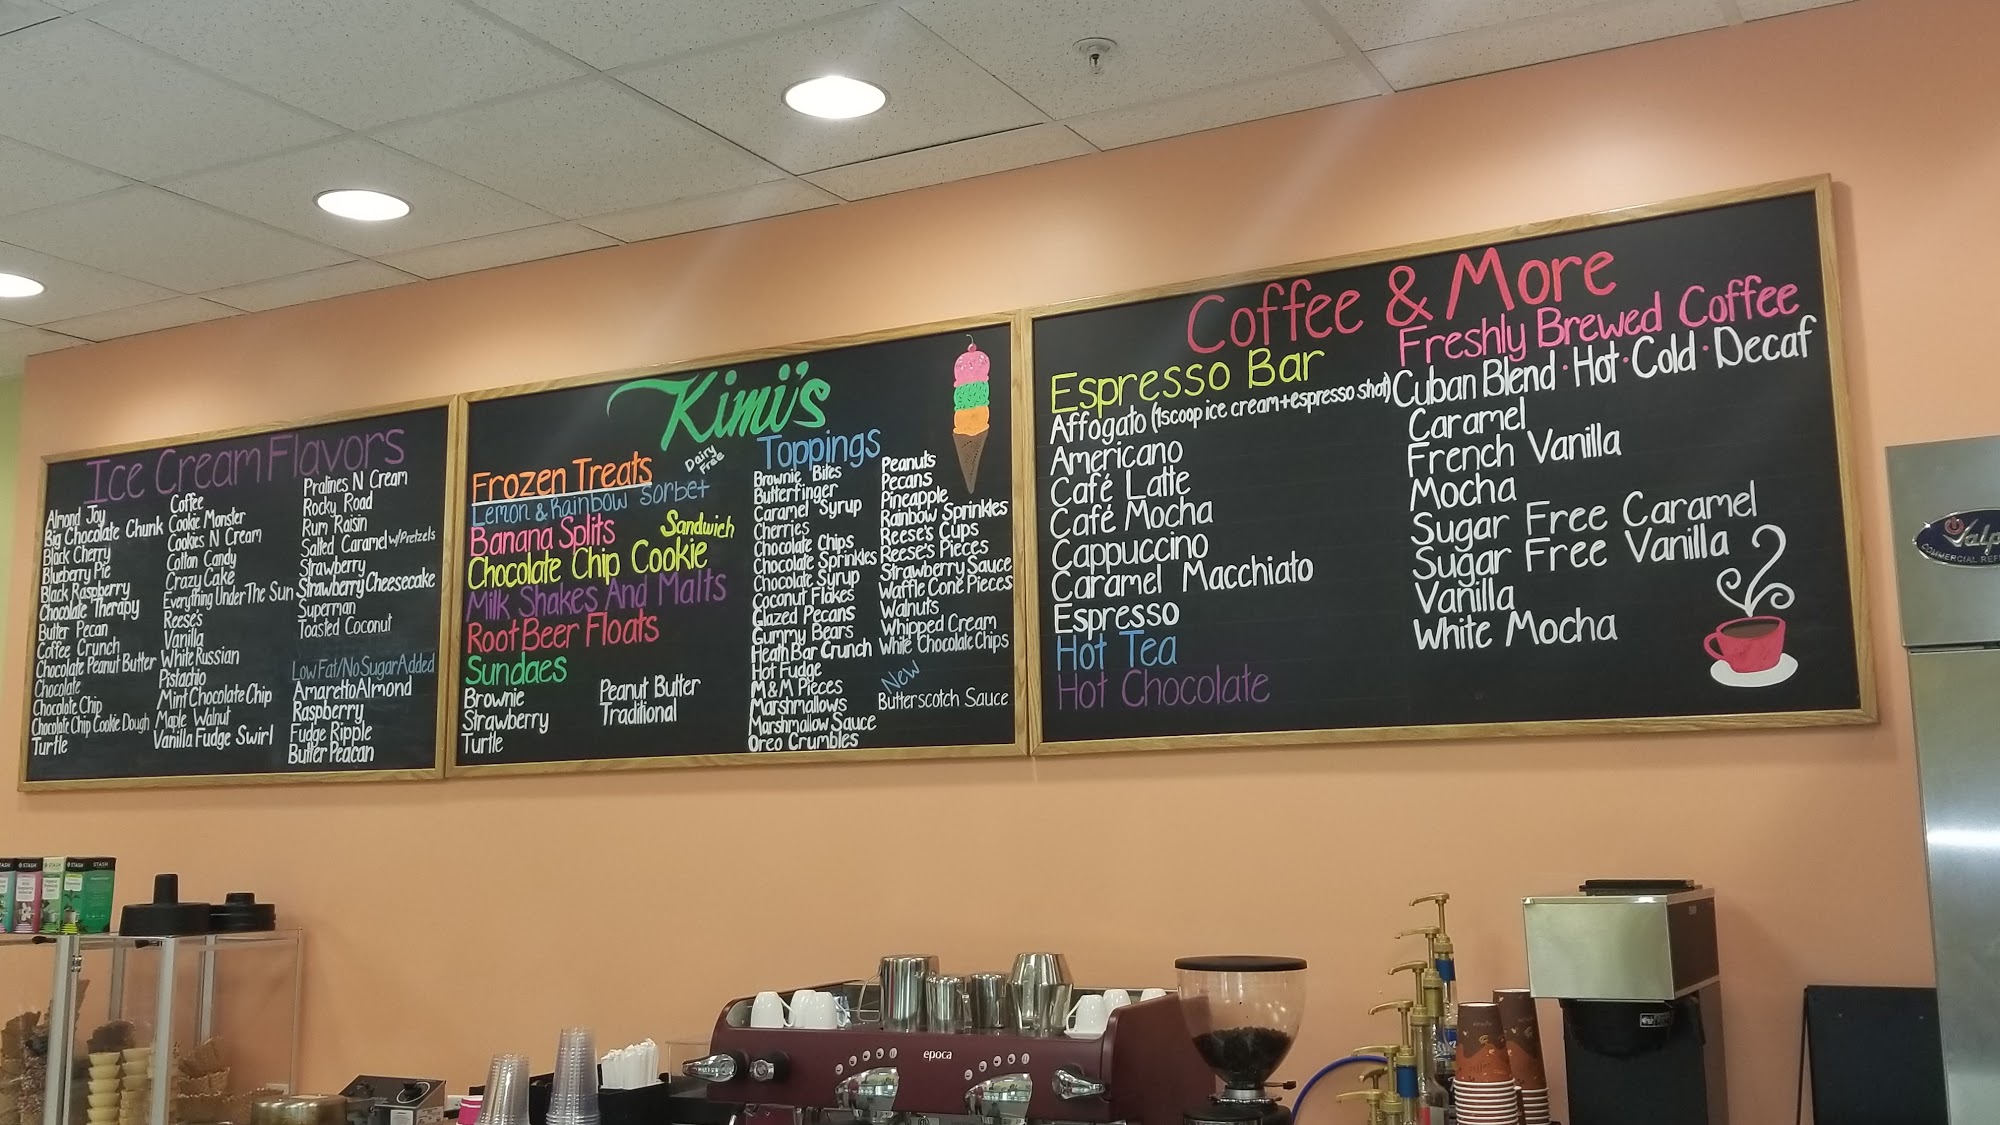 Ice Cream Flavors
Almond Joy
Big Chocolate Chunk
Black Cherry
Blueberry Pie
Black Raspberry
Chocolate Therapy
Butter Pecan
Coffee Crunch
Chocolate Peanut Butter
Chocolate
Chocolate Chip
Chocolate Chip Cookie Dough
Turtle
Coffee
Cookie Monster
Cookies N Cream
Cotton Candy
Crazy Cake
Everything Under The Sun
Reeses
Vanilla
White Russian
Pistachio
Mint Chocolate Chip
Maple Walnut
Vanilla Fudge Swirl
Pralines N Cream
Rocky Road
Rum Raisin
Salted Caramel w/Pretzels
Strawberry
Strawberry Cheesecake
Superman
Toasted Coconut
Low Fat/No Sugar Added
Amaretto Almond
Raspberry
Fudge Ripple
Butter Peacan
Kimi's
Frozen Treats
Dairy
Free
Lemon & Rainbow Sorbet
Banana Splits
Sandwich
Chocolate Chip Cookie
Milk Shakes And Malts
Root Beer Floats
Sundaes
Brownie
Strawberry
Turtle
Peanut Butter
Traditional
Toppings
Brownie Bites
Butterfinger
Caramel Syrup
Cherries
Chocolate Chips
Chocolate Sprinkles
Chocolate Syrup
Coconut Flakes
Glazed Pecans
Gummy Bears
Heath Bar Crunch
Hot Fudge
M&M Pieces
Marshmallows
Marshmallow Sauce
Oreo Crumbles
Peanuts
Pecans
Pineapple
Rainbow Sprinkles
Reese's Cups
Reese's Pieces
Strawberry Sauce
Waffle Cone Pieces
Walnuts
Whipped Cream
White Chocolate Chips
New
Butterscotch Sauce
Coffee & More
Espresso Bar
Affogato (1scoop ice cream+espresso shot)
Americano
Café Latte
Café Mocha
Cappuccino
Caramel Macchiato
Espresso
Hot Tea
Hot Chocolate
Freshly Brewed Coffee
Cuban Blend · Hot · Cold · Decaf
Caramel
French Vanilla
Mocha
Sugar Free Caramel
Sugar Free Vanilla
Vanilla
White Mocha
COMMERCIAL
STASH
STASH
STASH
epoca